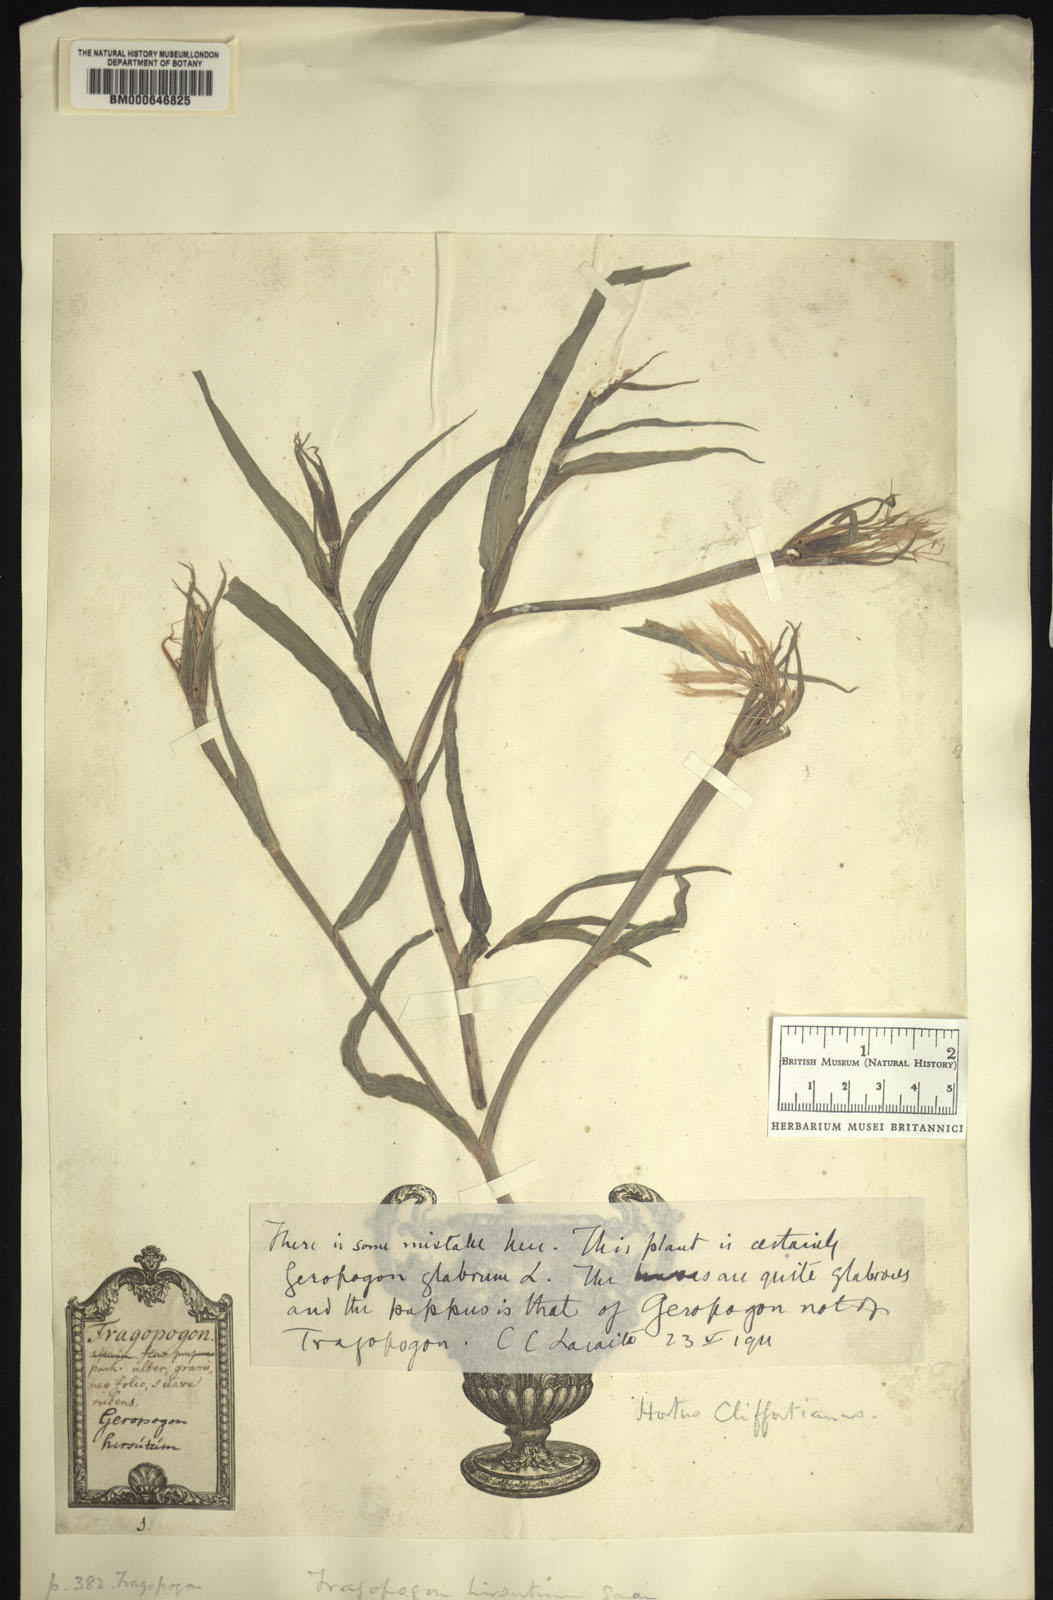 THE NATURAL HISTORY MUSEUM, LONDON
DEPARTMENT OF BOTANY
BM000646825
1 2
BRITISH MUSEUM (NATURAL HISTORY)
1 2 3 4 5
HERBARIUM MUSEI BRITANNICI
There is some mistake here. This plant is certainly
Geropogon glabrum L. The are quite glabrous
and the pappus is that of Geropogon not of
Tragopogon. C C Lacaita 23 V 1911
Tragopogon.
purpureo
park. alter, grami,
neo folio, suave
rubens.
Geropogon
hirsutum
Hortus Cliffortianus.
p. 382. Tragopogon
Tragopogon hirsutum